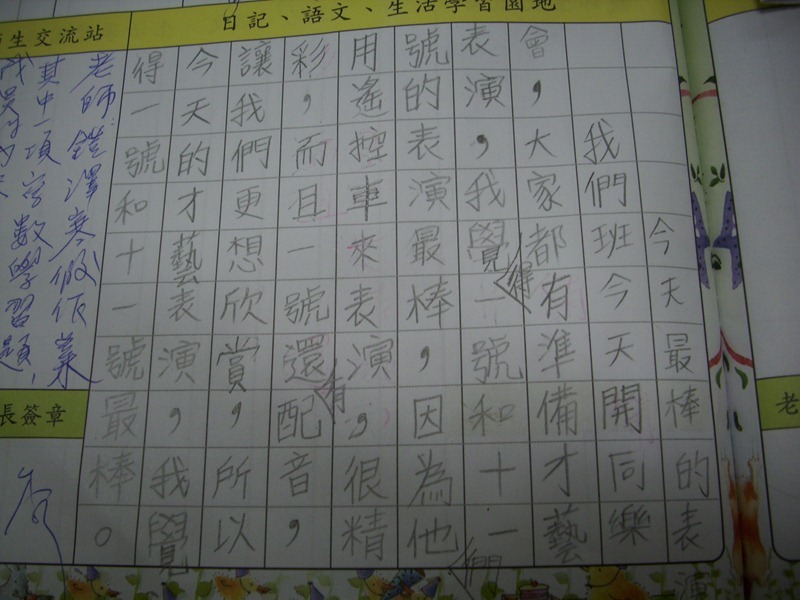 日記、語文、生活學習園地
今天最棒的表演
我們班今天開同樂
會，大家都有準備才藝
表演，我覺得一號和十一
號的表演最棒，因為他們
用遙控車來表演，很精
彩，而且一號還有配音，
讓我們更想欣賞，所以
今天的才藝表演，我覺
得一號和十一號最棒。
生交流站
老師：鎧澤寒假作業
其中一項寫數學習題，
長簽章
老